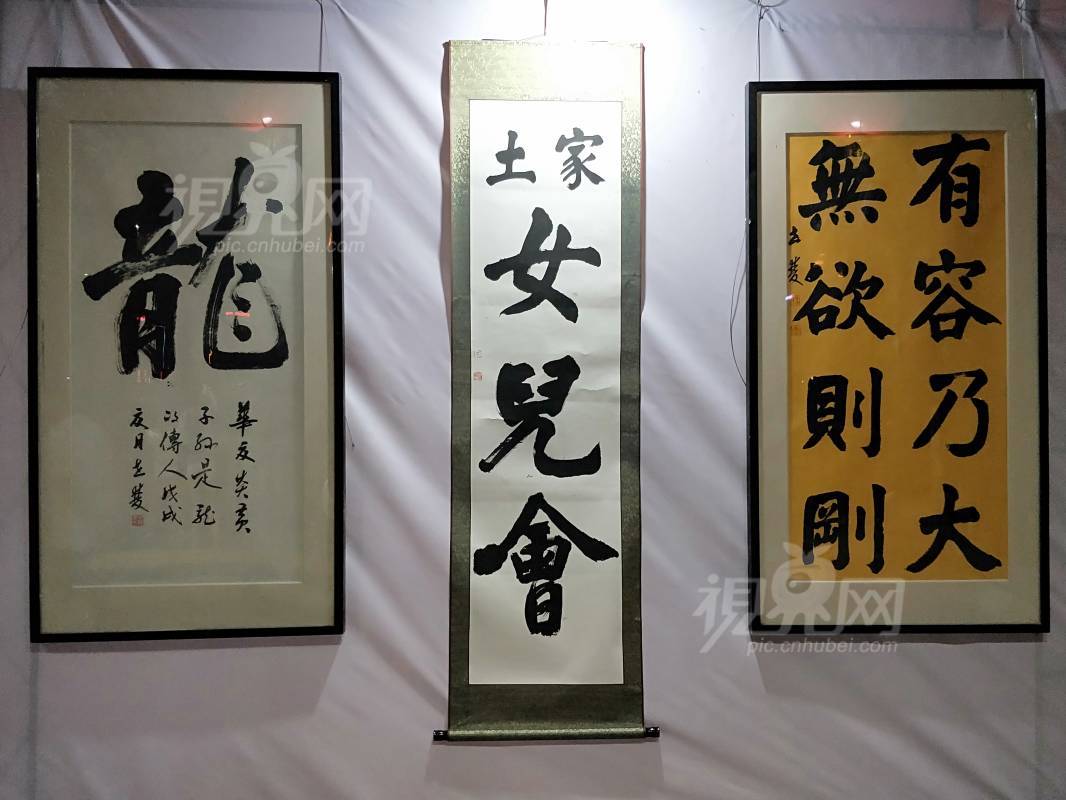 龍
華夏炎黃
子孫是龍
的傳人戊戌
夏月立雙
土家
女兒會
有容乃大
無欲則剛
視界网
pic.cnhubei.com
視界网
pic.cnhubei.com